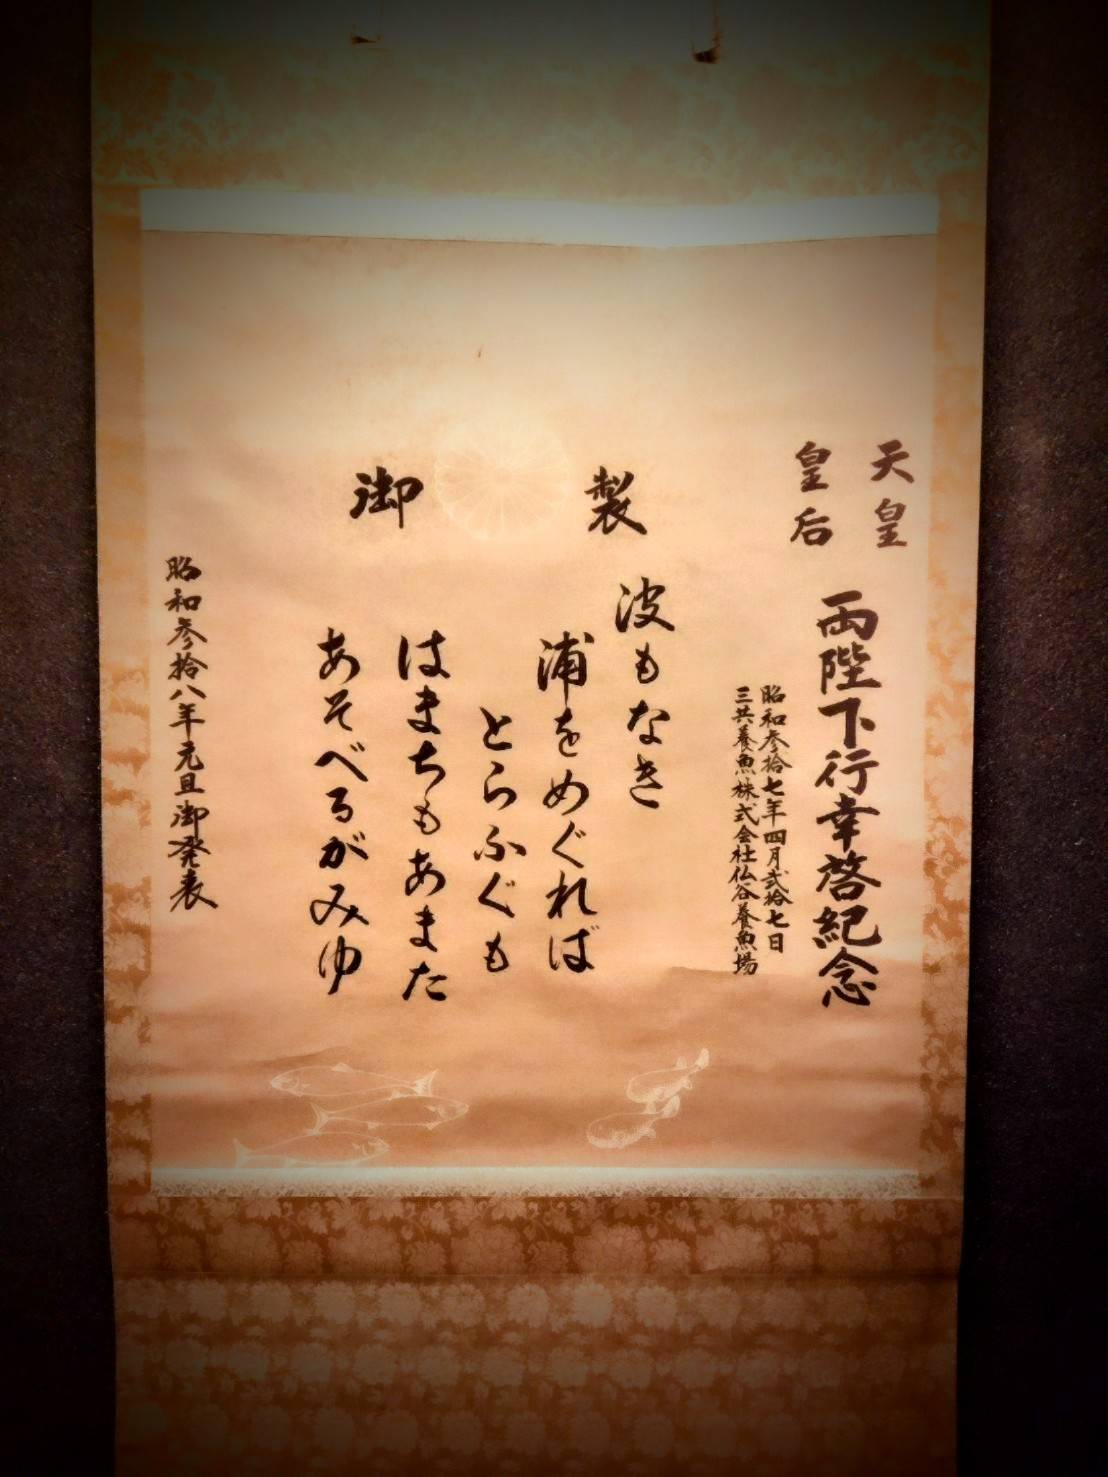 天皇
皇后
両陛下行幸啓紀念
昭和参拾七年四月弐拾七日
三共養魚株式会社仏谷養魚場
御製
波もなき
浦をめぐれば
とらふぐも
はまちもあまた
あそべるがみゆ
昭和参拾八年元旦御発表